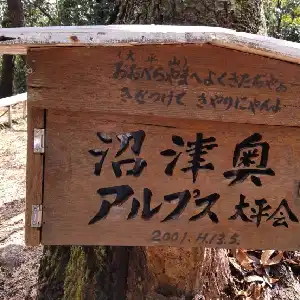 (大平山)
おおべらやまへよくきたにゃぁ
きをつけて きやりにゃんよ
沼津奥
アルプス 大平会
2001.H.13.5.